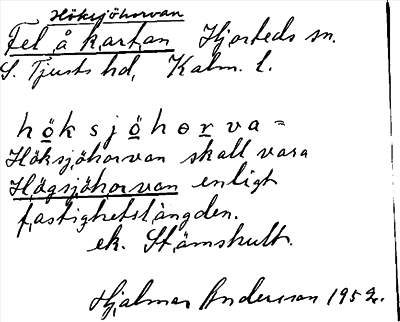 Höksjöhorvan
Fel å kartan Hjorteds sn.
S. Tjusts hd, Kalm. l.
höksjöhorva =
Höksjöhorvan skall vara
Högsjöhorvan enligt
fastighetslängden.
ek. Stämshult.
Hjalmar Andersson 1952.